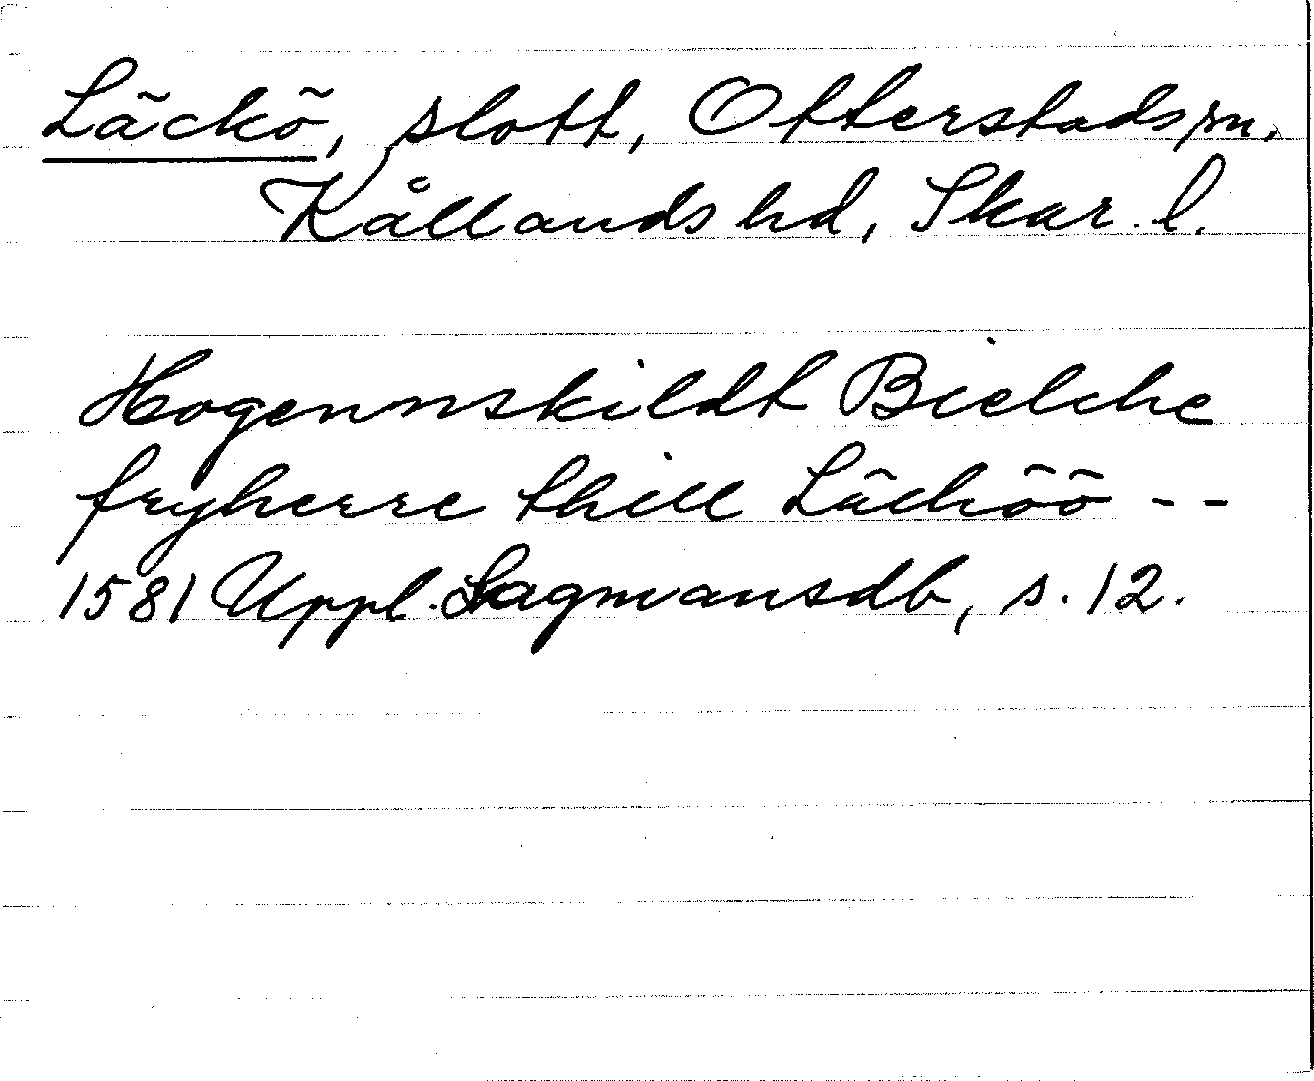 Läckö, slott, Otterstads sn.
Kållands hd, Skar. l.
Hogennskildt Bielche
fryherre thill Lächöö - -
1581 Uppl. Lagmansdb, s. 12.